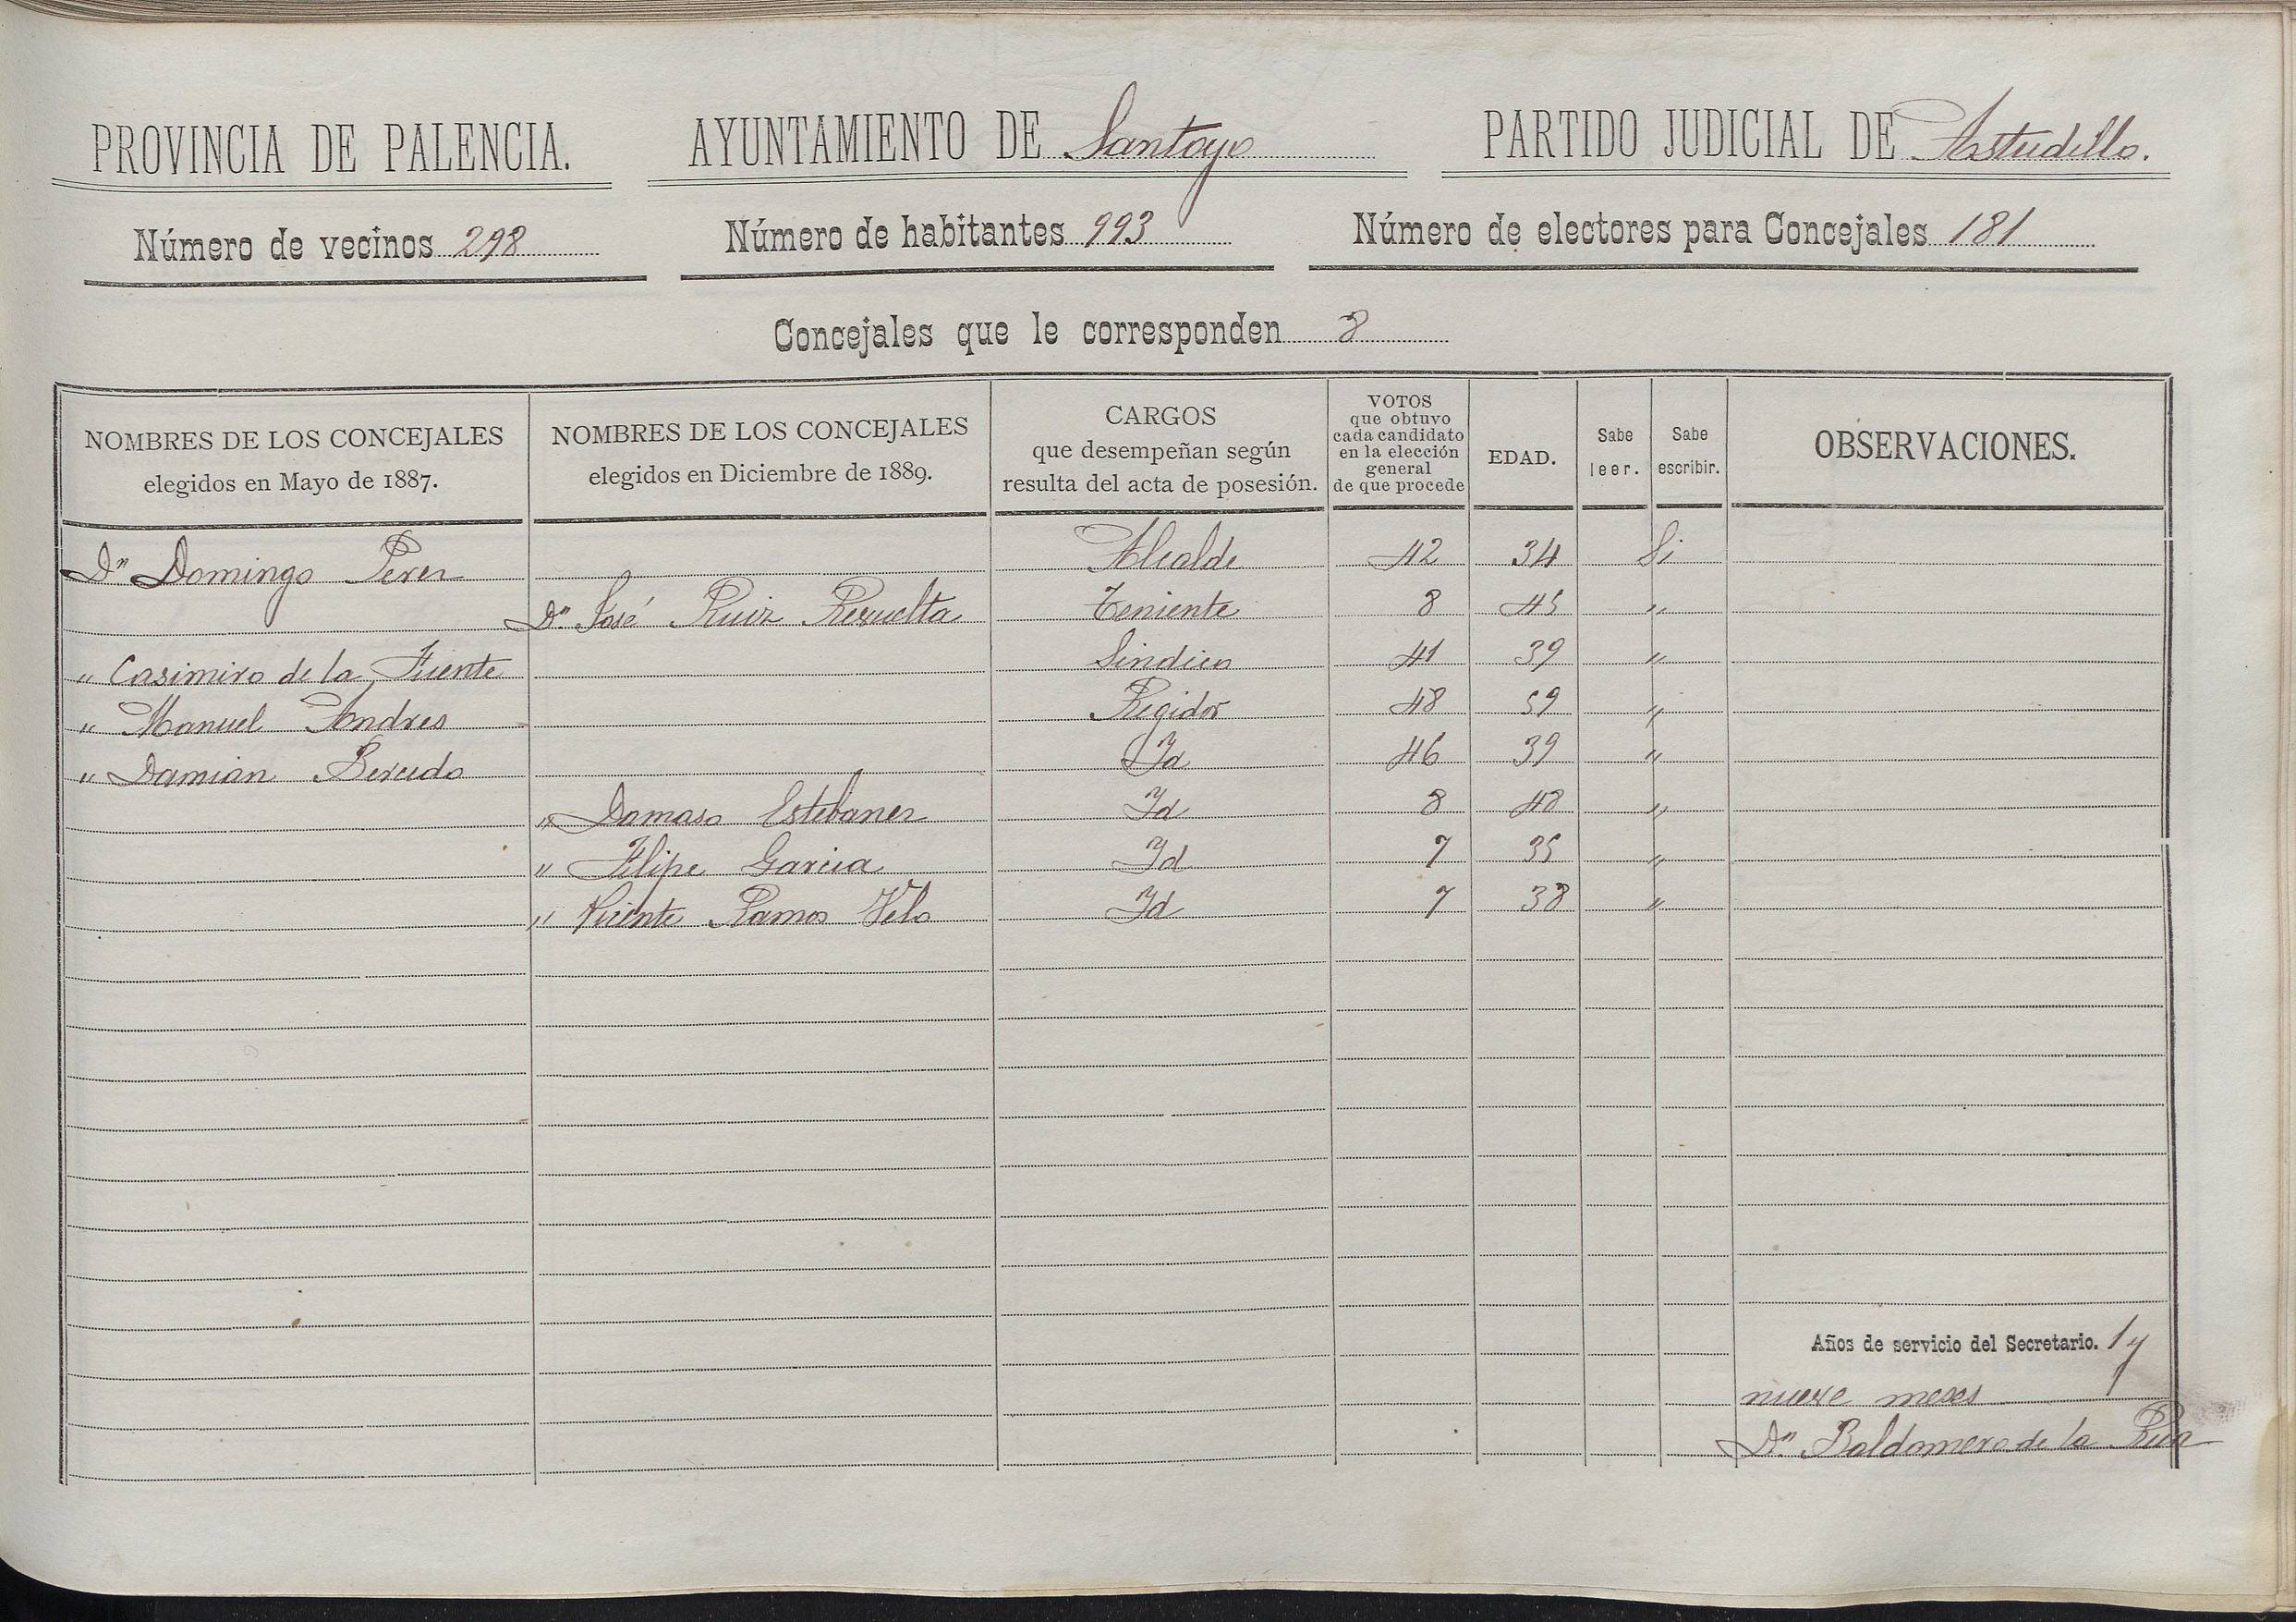 PROVINCIA DE PALENCIA. AYUNTAMIENTO DE Santoyo PARTIDO JUDICIAL DE Astudillo.
Número de vecinos 298 Número de habitantes 993 Número de electores para Concejales 181
Concejales que le corresponden 8
NOMBRES DE LOS CONCEJALES elegidos en Mayo de 1887. NOMBRES DE LOS CONCEJALES elegidos en Diciembre de 1889. CARGOS que desempeñan según resulta del acta de posesión. VOTOS que obtuvo cada candidato en la elección general de que procede EDAD. Sabe leer. Sabe escribir. OBSERVACIONES.
Dn Domingo Perez Alcalde 42 34 Si
Dn José Ruiz Rezuelta Teniente 8 45 "
" Casimiro de la Fuente Sindico 41 39 "
" Manuel Andres Regidor 48 59 "
" Damian Bercedo Id 46 39 "
" Damaso Estebanez Id 8 48 "
" Felipe Garcia Id 7 35 "
" Vicente Ramos Velo Id 7 38 "
Años de servicio del Secretario. 1 y
nueve meses
Dn Baldomero de la Rua